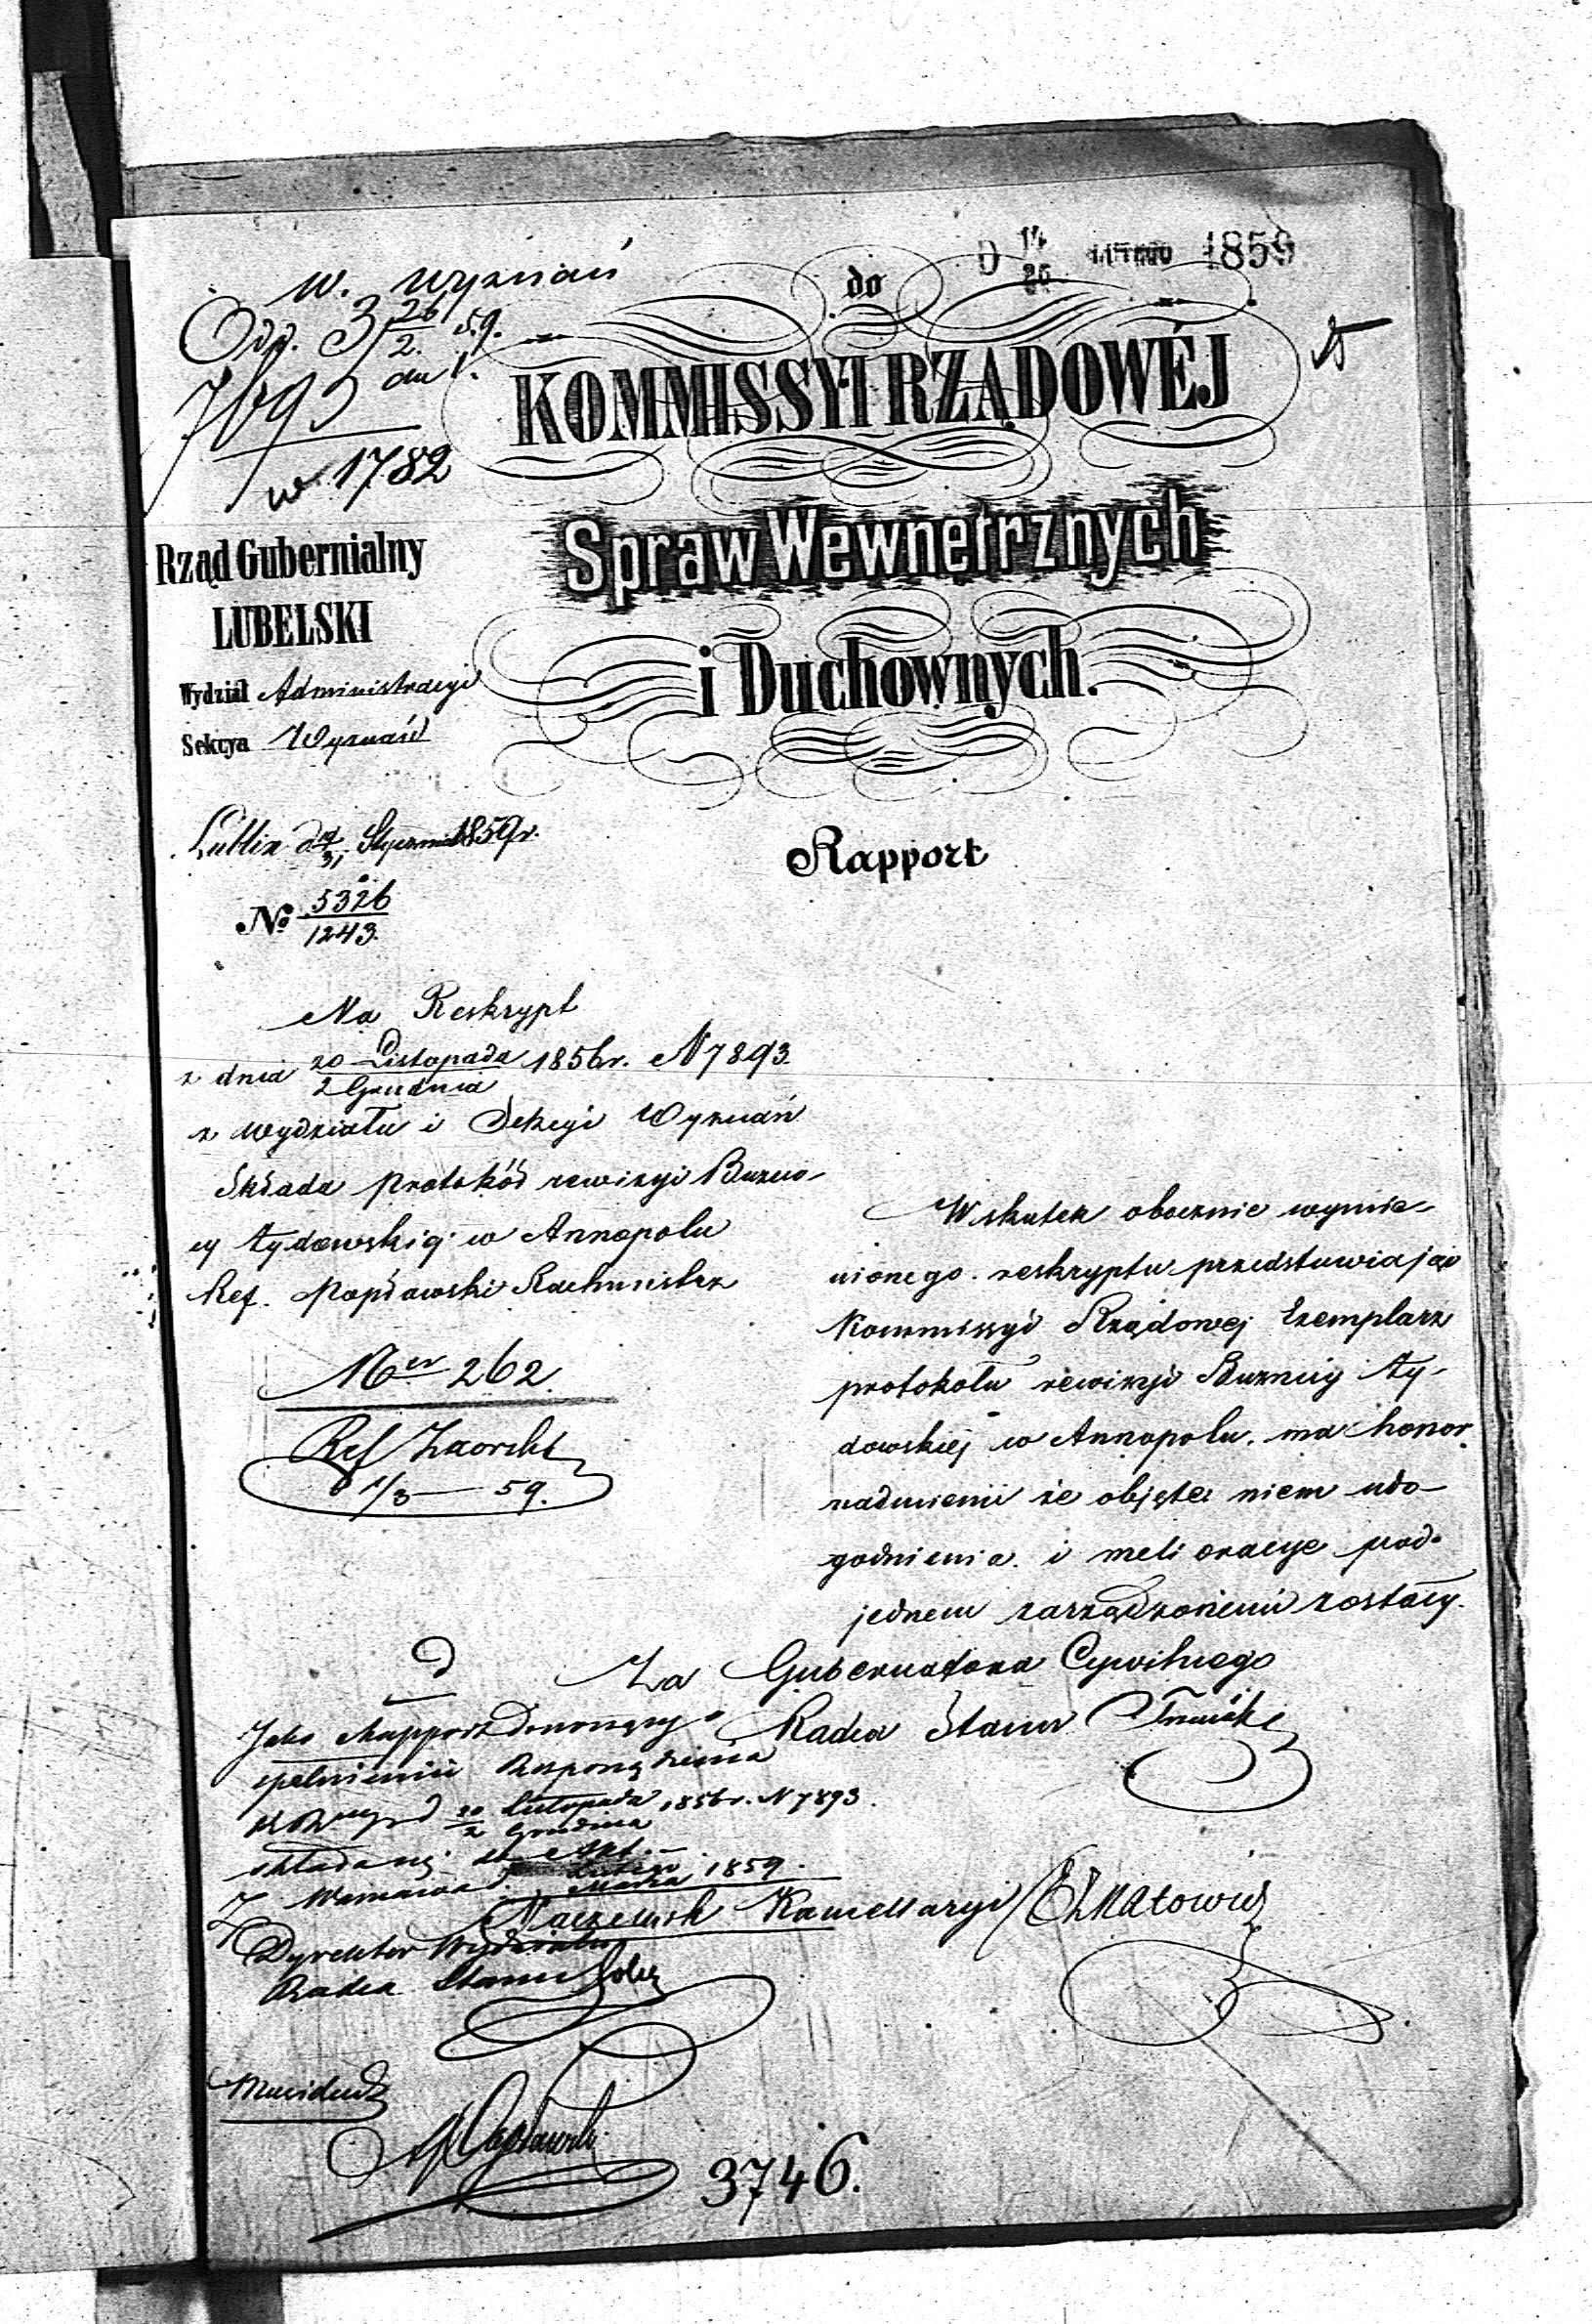 W. Wyznań
Odd. 3 26/2. 59.
7893
w 1782
D 14/26 LUTEGO 1859
do
KOMMISSYI RZĄDOWÉJ
Spraw Wewnętrznych
i Duchownych.
Rząd Gubernialny
LUBELSKI
Wydział Administracyi
Sekcya Wyznań
Lublin d 19/31 Stycznia 1859 r.
Rapport
No 5326/1243.
Na Reskrypt
z dnia 20 Listopada/2 Grudnia 1856 r. N 7893.
z Wydziału i Sekcyi Wyznań
Składa protokół rewizyi Buznic-
y Żydowskiej w Annopolu
Ref. Popławski Rachmistrz
Ner 262.
Ref Zaorski
1/3 — 59.
Wskutek obocznie wymie-
nionego reskryptu przedstawiając
Kommissyi Rządowej Exemplarz
protokołu rewizyi Buznicy Ży-
dowskiej w Annopolu. ma honor
nadmienić że objęte niem udo-
godnienia i melioracye pod-
jednem zarządzonemi zostały.
Za Gubernatora Cywilnego
Radca Stanu
Jako Rapport donoszący o
spełnieniu Rozporządzenia
d 20/2 Listopada/Grudnia 1856 r. N 7893.
składa się do Akt.
Warszawa d. Lutego/Marca 1859.
Naczelnik Kancellaryi
Dyrektor Wydziału
Radca Stanu
3746.